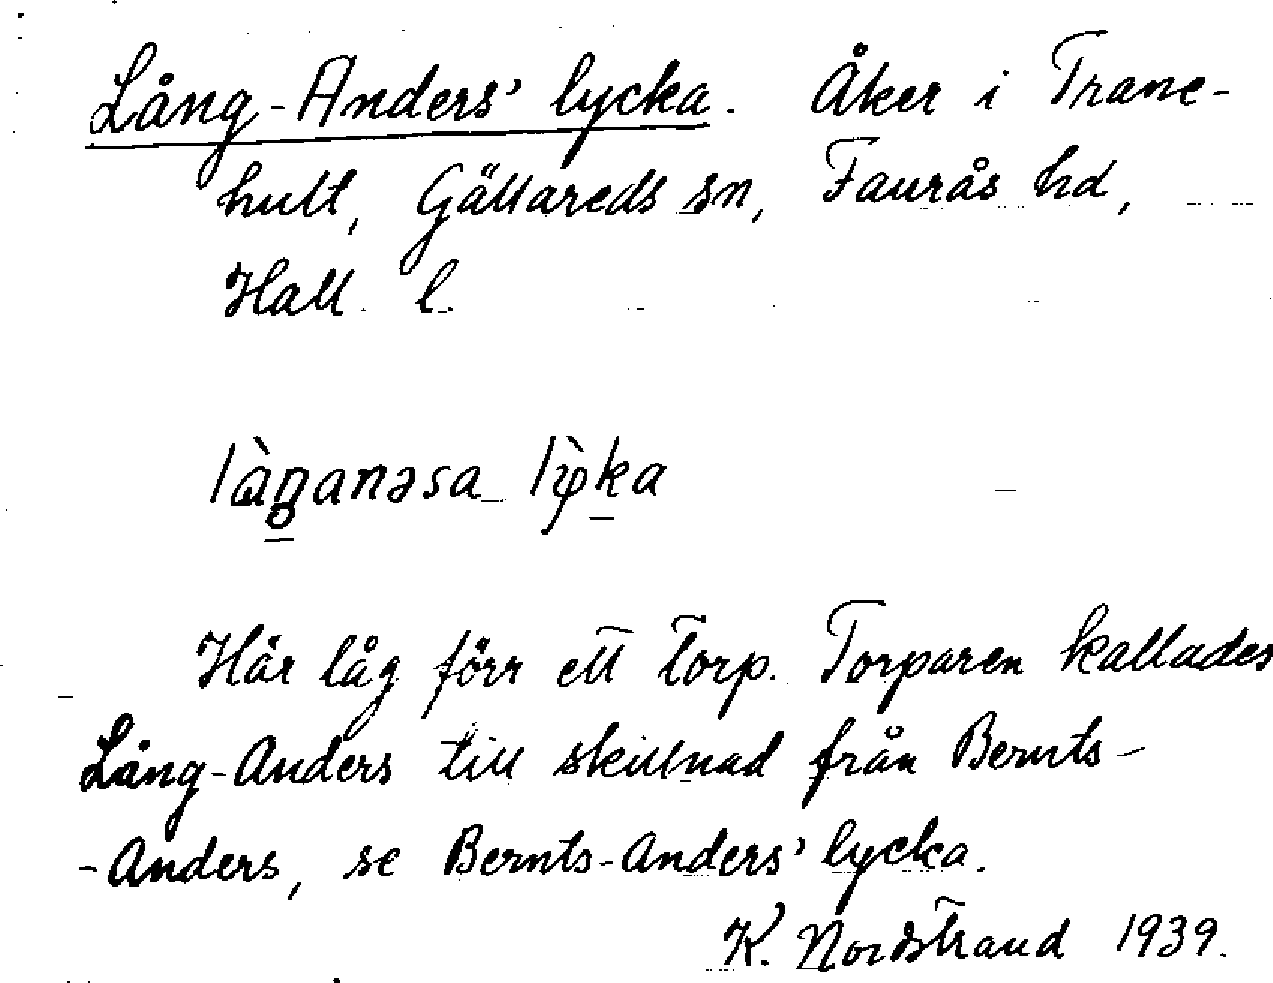 Lång-Anders' lycka. Åker i Trane-
hult, Gällareds sn, Faurås hd,
Hall. l.
làŋanəsa lỳka
Här låg förr ett torp. Torparen kallades
Lång-Anders till skillnad från Bernts-
-Anders, se Bernts-Anders' lycka.
K. Nordstrand 1939.